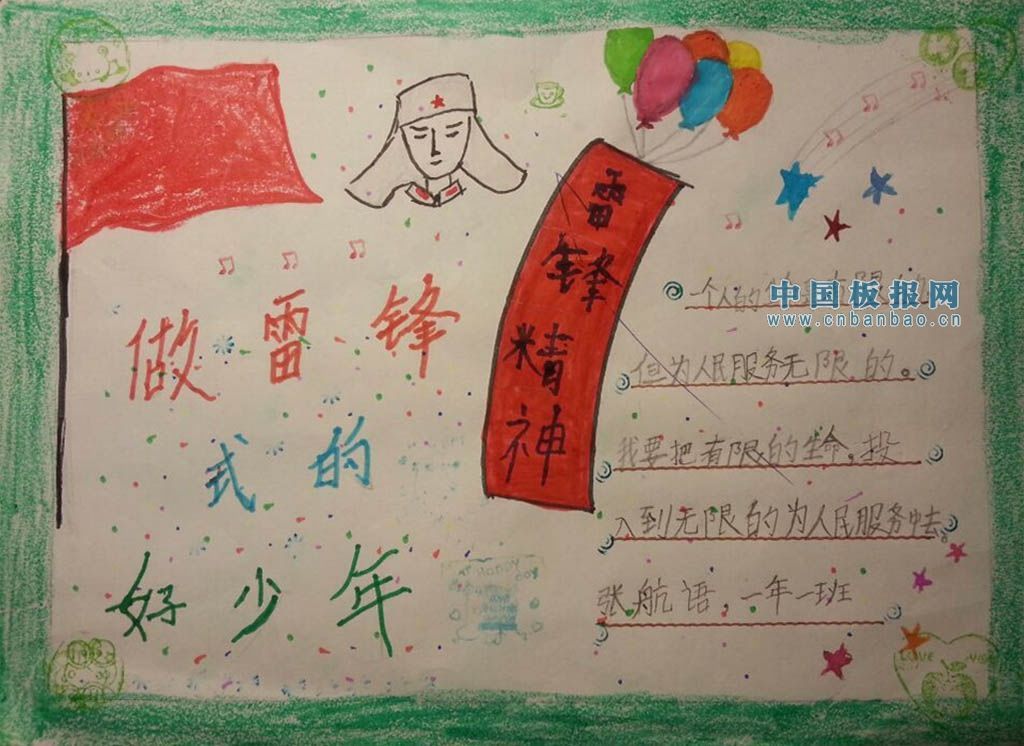 做雷锋
式的
好少年
雷锋精神
一个人的
中国板报网
www.cnbanbao.cn
但为人民服务无限的。
我要把有限的生命,投
入到无限的为人民服务中去。
张航语,一年一班